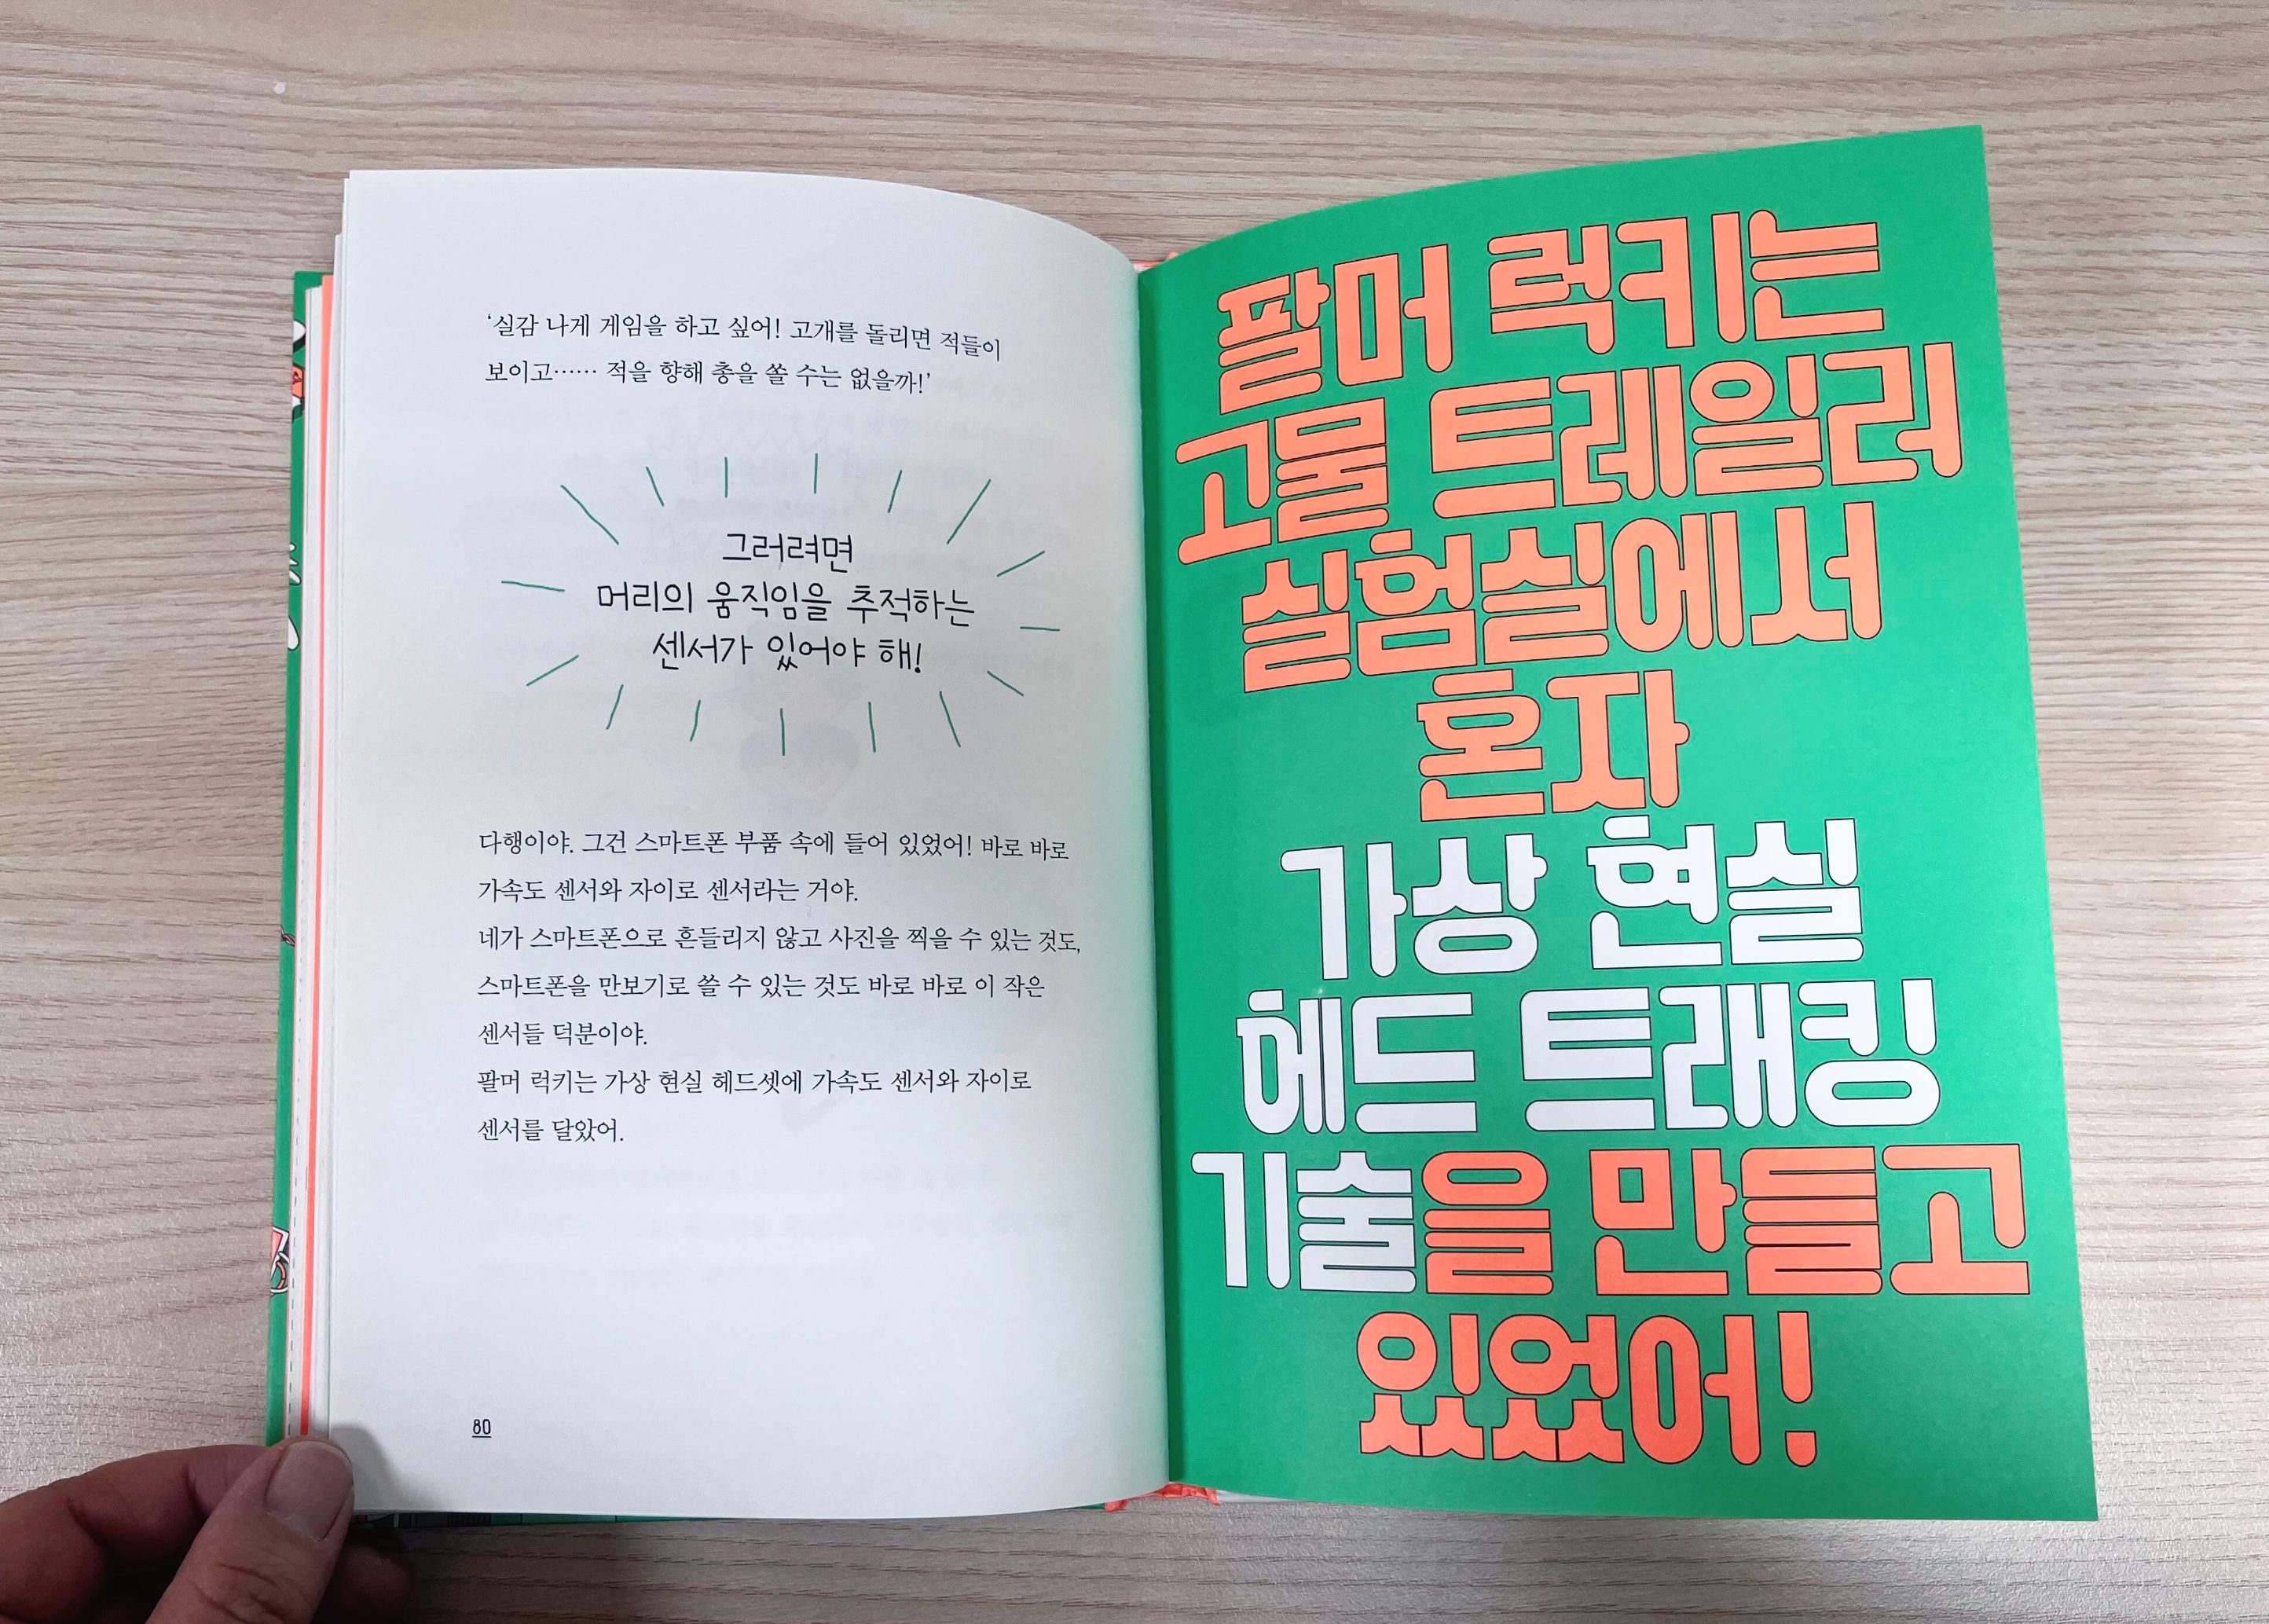 ‘실감 나게 게임을 하고 싶어! 고개를 돌리면 적들이
보이고…… 적을 향해 총을 쏠 수는 없을까!’
그러려면
머리의 움직임을 추적하는
센서가 있어야 해!
다행이야. 그건 스마트폰 부품 속에 들어 있었어! 바로 바로
가속도 센서와 자이로 센서라는 거야.
네가 스마트폰으로 흔들리지 않고 사진을 찍을 수 있는 것도,
스마트폰을 만보기로 쓸 수 있는 것도 바로 바로 이 작은
센서들 덕분이야.
팔머 럭키는 가상 현실 헤드셋에 가속도 센서와 자이로
센서를 달았어.
80
팔머 럭키는
고물 트레일러
실험실에서
혼자
가상 현실
헤드 트래킹
기술을 만들고
있었어!